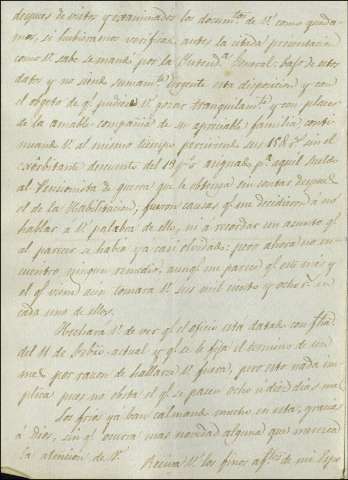 despues de vistos y examinados los docum.tos de V. como queda-
mos, si hubieramos verificar antes la citada presentacion
como V. sabe se mandó por la Intend.a General: bajo de estos
datos y no siend sumam.te urgente esta disposicion y con
el objeto de q.e pudiera V. gozar tranquilam.te y con placer
de la amable compañia de su apreciable familia conti-
nuando V. al mismo tiempo percibiendo sus 158 r.s sin el
exorbitante descuento del 18 p.% asignad.o p.a aquel sueldo
al Pensionista de guerra que le obtenga sin contar despues
el de la Habilitacion; fueron causas q.e me decidieron á no
hablar á V. palabra de ello, ni á recordar un asunto q.e
al parecer se habia ya casi olvidado: pero ahora no en-
cuentro ningun remedio, aunq.e me parece q.e este mes y
el q.e viene aun tomará V. sus mil ciento y ocho r.s en
cada uno de ellos.
Hechará V. de ver q.e el oficio está datado con fha.
del 11 de actual y q.e se le fija el termino de un
mes por razon de hallarse V. fuera, pero esto nada im-
plica pues no obsta el q.e se pasen ocho ó diez dias mas.
Los frios ya van calmando mucho en esta, gracias
á Dios, sin q.e ocurra mas novedad alguna que merezca
la atencion de V.
Reciva V. los finos af.tos de mi Espo